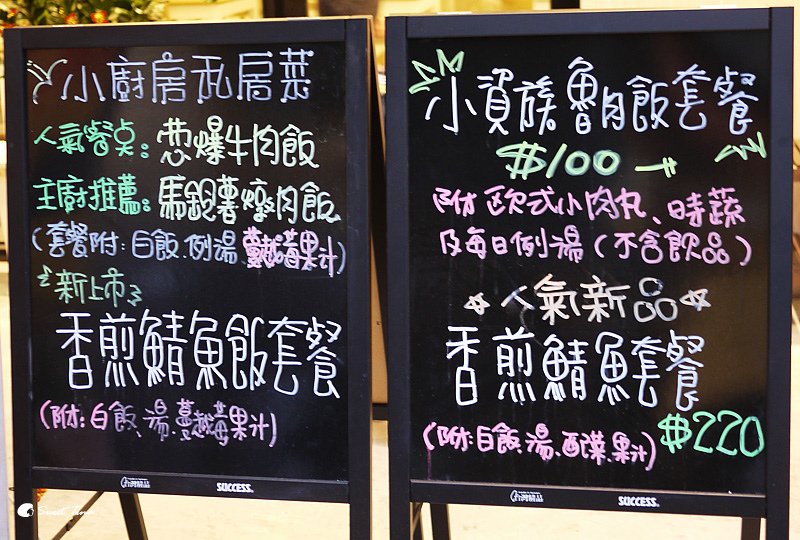 小廚房私房菜
人氣餐点：蔥爆牛肉飯
主廚推薦：馬鈴薯燉肉飯
(套餐附：白飯.例湯.蔓越莓果汁)
新上市
香煎鯖魚飯套餐
(附：白飯、湯、蔓越莓果汁)
SUCCESS
小資族魯肉飯套餐
$100
附欧式小肉丸、時蔬
及每日例湯(不含飲品)
☆人氣新品☆
香煎鯖魚套餐
(附：白飯、湯、配菜、果汁)
$220
SUCCESS